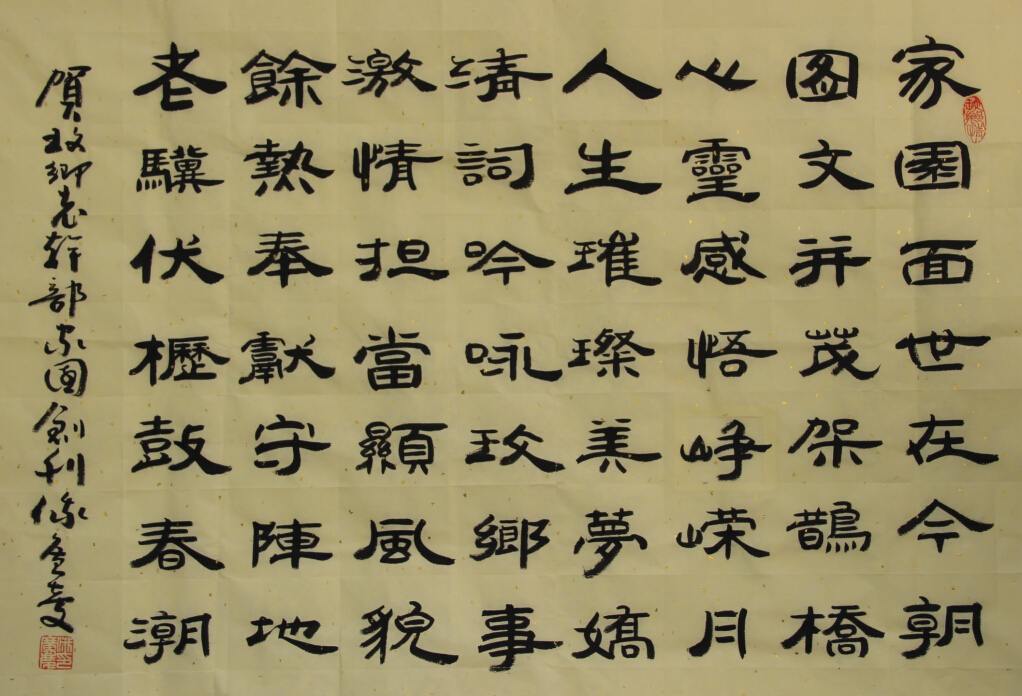 家園面世在今朝
图文并茂架鵲橋
心靈感悟峥嵘月
人生璀璨美夢嬌
清詞吟咏玫鄉事
激情担當顯風貌
餘熱奉獻守陣地
老驥伏櫪鼓春潮
賀玫鄉老幹部家園創刊